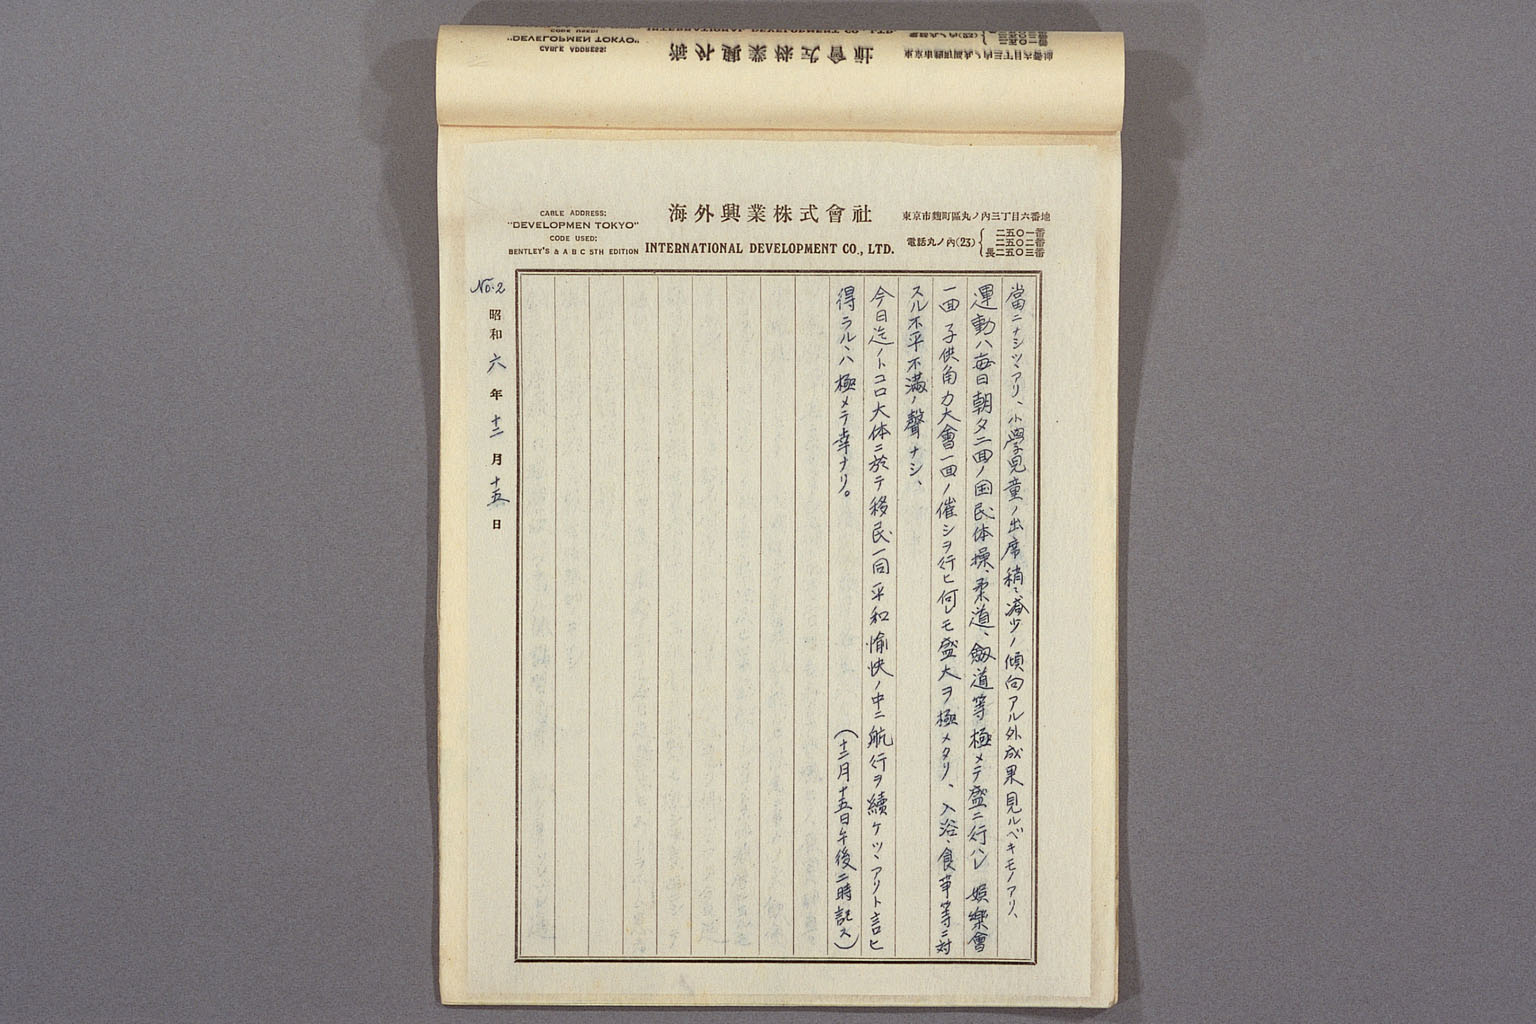 CABLE ADDRESS:
"DEVELOPMEN TOKYO"
CODE USED:
BENTLEY'S & A B C 5TH EDITION
海外興業株式會社
INTERNATIONAL DEVELOPMENT CO., LTD.
東京市麴町區丸ノ內三丁目六番地
電話丸ノ內(23)
二五〇一番
二五〇二番
長二五〇三番
當ニナシツヽアリ、小學児童ノ出席稍々減少ノ傾向アル外成果見ルベキモノアリ、
運動ハ毎日朝夕二回ノ国民体操、柔道、劔道等極メテ盛ニ行ハレ 娯樂會
一回 子供角力大會一回ノ催シヲ行ヒ何レモ盛大ヲ極メタリ、入浴、食事等ニ対
スル不平不満ノ聲ナシ、
今日迄ノトコロ大体ニ於テ移民一同平和愉快ノ中ニ航行ヲ續ケツヽアリト言ヒ
得ラルヽハ極メテ幸ナリ。
(十二月十五日午後二時記ス)
No.2
昭和六年十二月十五日